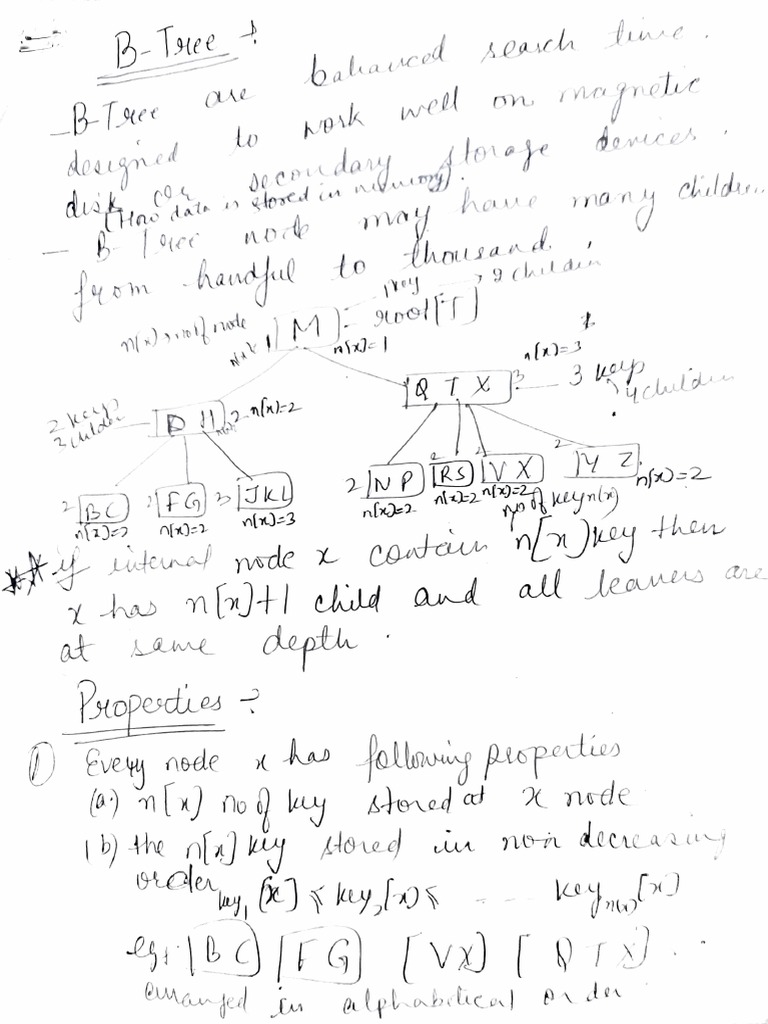 B-Tree :-
- B-Tree are balanced search time.
designed to work well on magnetic
disk or secondary storage devices.
(How data is stored in memory).
- B-Tree node may have many children
from handful to thousand.
1 key → 2 children
n(x) → no of node 1 M root[T]
n[x]=1
n[x]=3
Q T X 3 3 key
4 children
2 keys
3 childen D H 2 n[x]=2
2 BC 2 FG 3 JKL 2 NP 2 RS 2 VX 2 YZ n[x]=2
n[x]=2 n[x]=2 n[x]=3 n[x]=2 n[x]=2 n[x]=2
no of key n(x)
** if internal node x contain n[x] key then
x has n[x]+1 child and all leavers are
at same depth.
Properties :-
① Every node x has following properties
(a.) n[x] no of key stored at x node
(b) the n[x] key stored in non decreasing
order key1 [x] ≤ key2 [x] ≤ ---- key n(x) [x]
eg:- [BC] [FG] [VX] [QTX] ..
arranged in alphabetical order